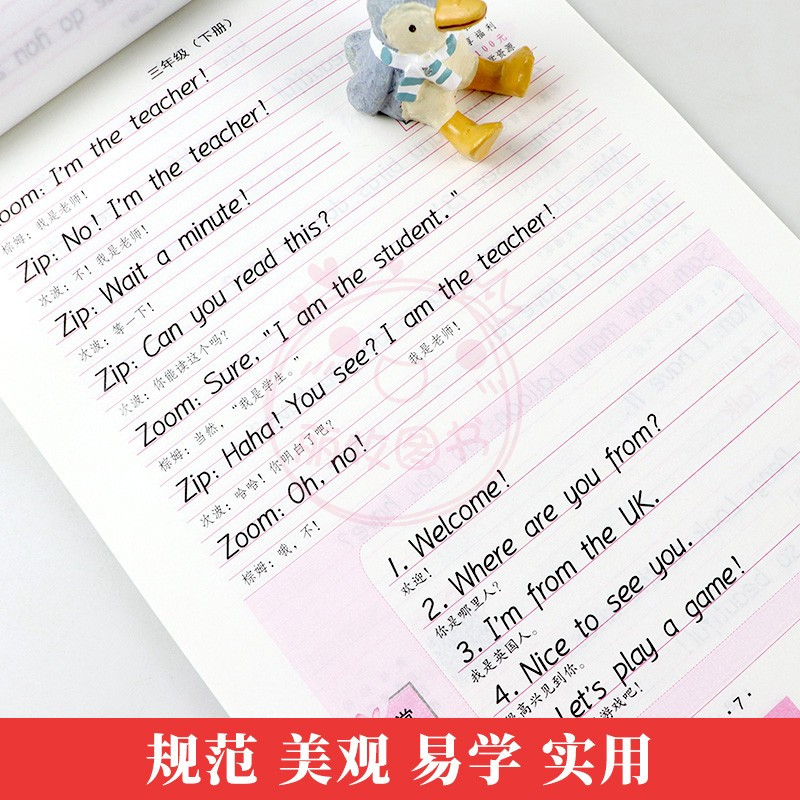 三年级（下册）
享福利
100元
学资源
Zoom: I'm the teacher!
棕姆：我是老师！
Zip: No! I'm the teacher!
次波：不！我是老师！
Zip: Wait a minute!
次波：等一下！
Zip: Can you read this?
次波：你能读这个吗？
Zoom: Sure, "I am the student."
棕姆：当然，“我是学生。”
Zip: Haha! You see? I am the teacher!
次波：哈哈！你明白了吧？ 我是老师！
Zoom: Oh, no!
棕姆：哦，不！
1. Welcome!
欢迎！
2. Where are you from?
你是哪里人？
3. I'm from the UK.
我是英国人。
4. Nice to see you.
高兴见到你。
Let's play a game!
游戏吧！
·7·
规范 美观 易学 实用